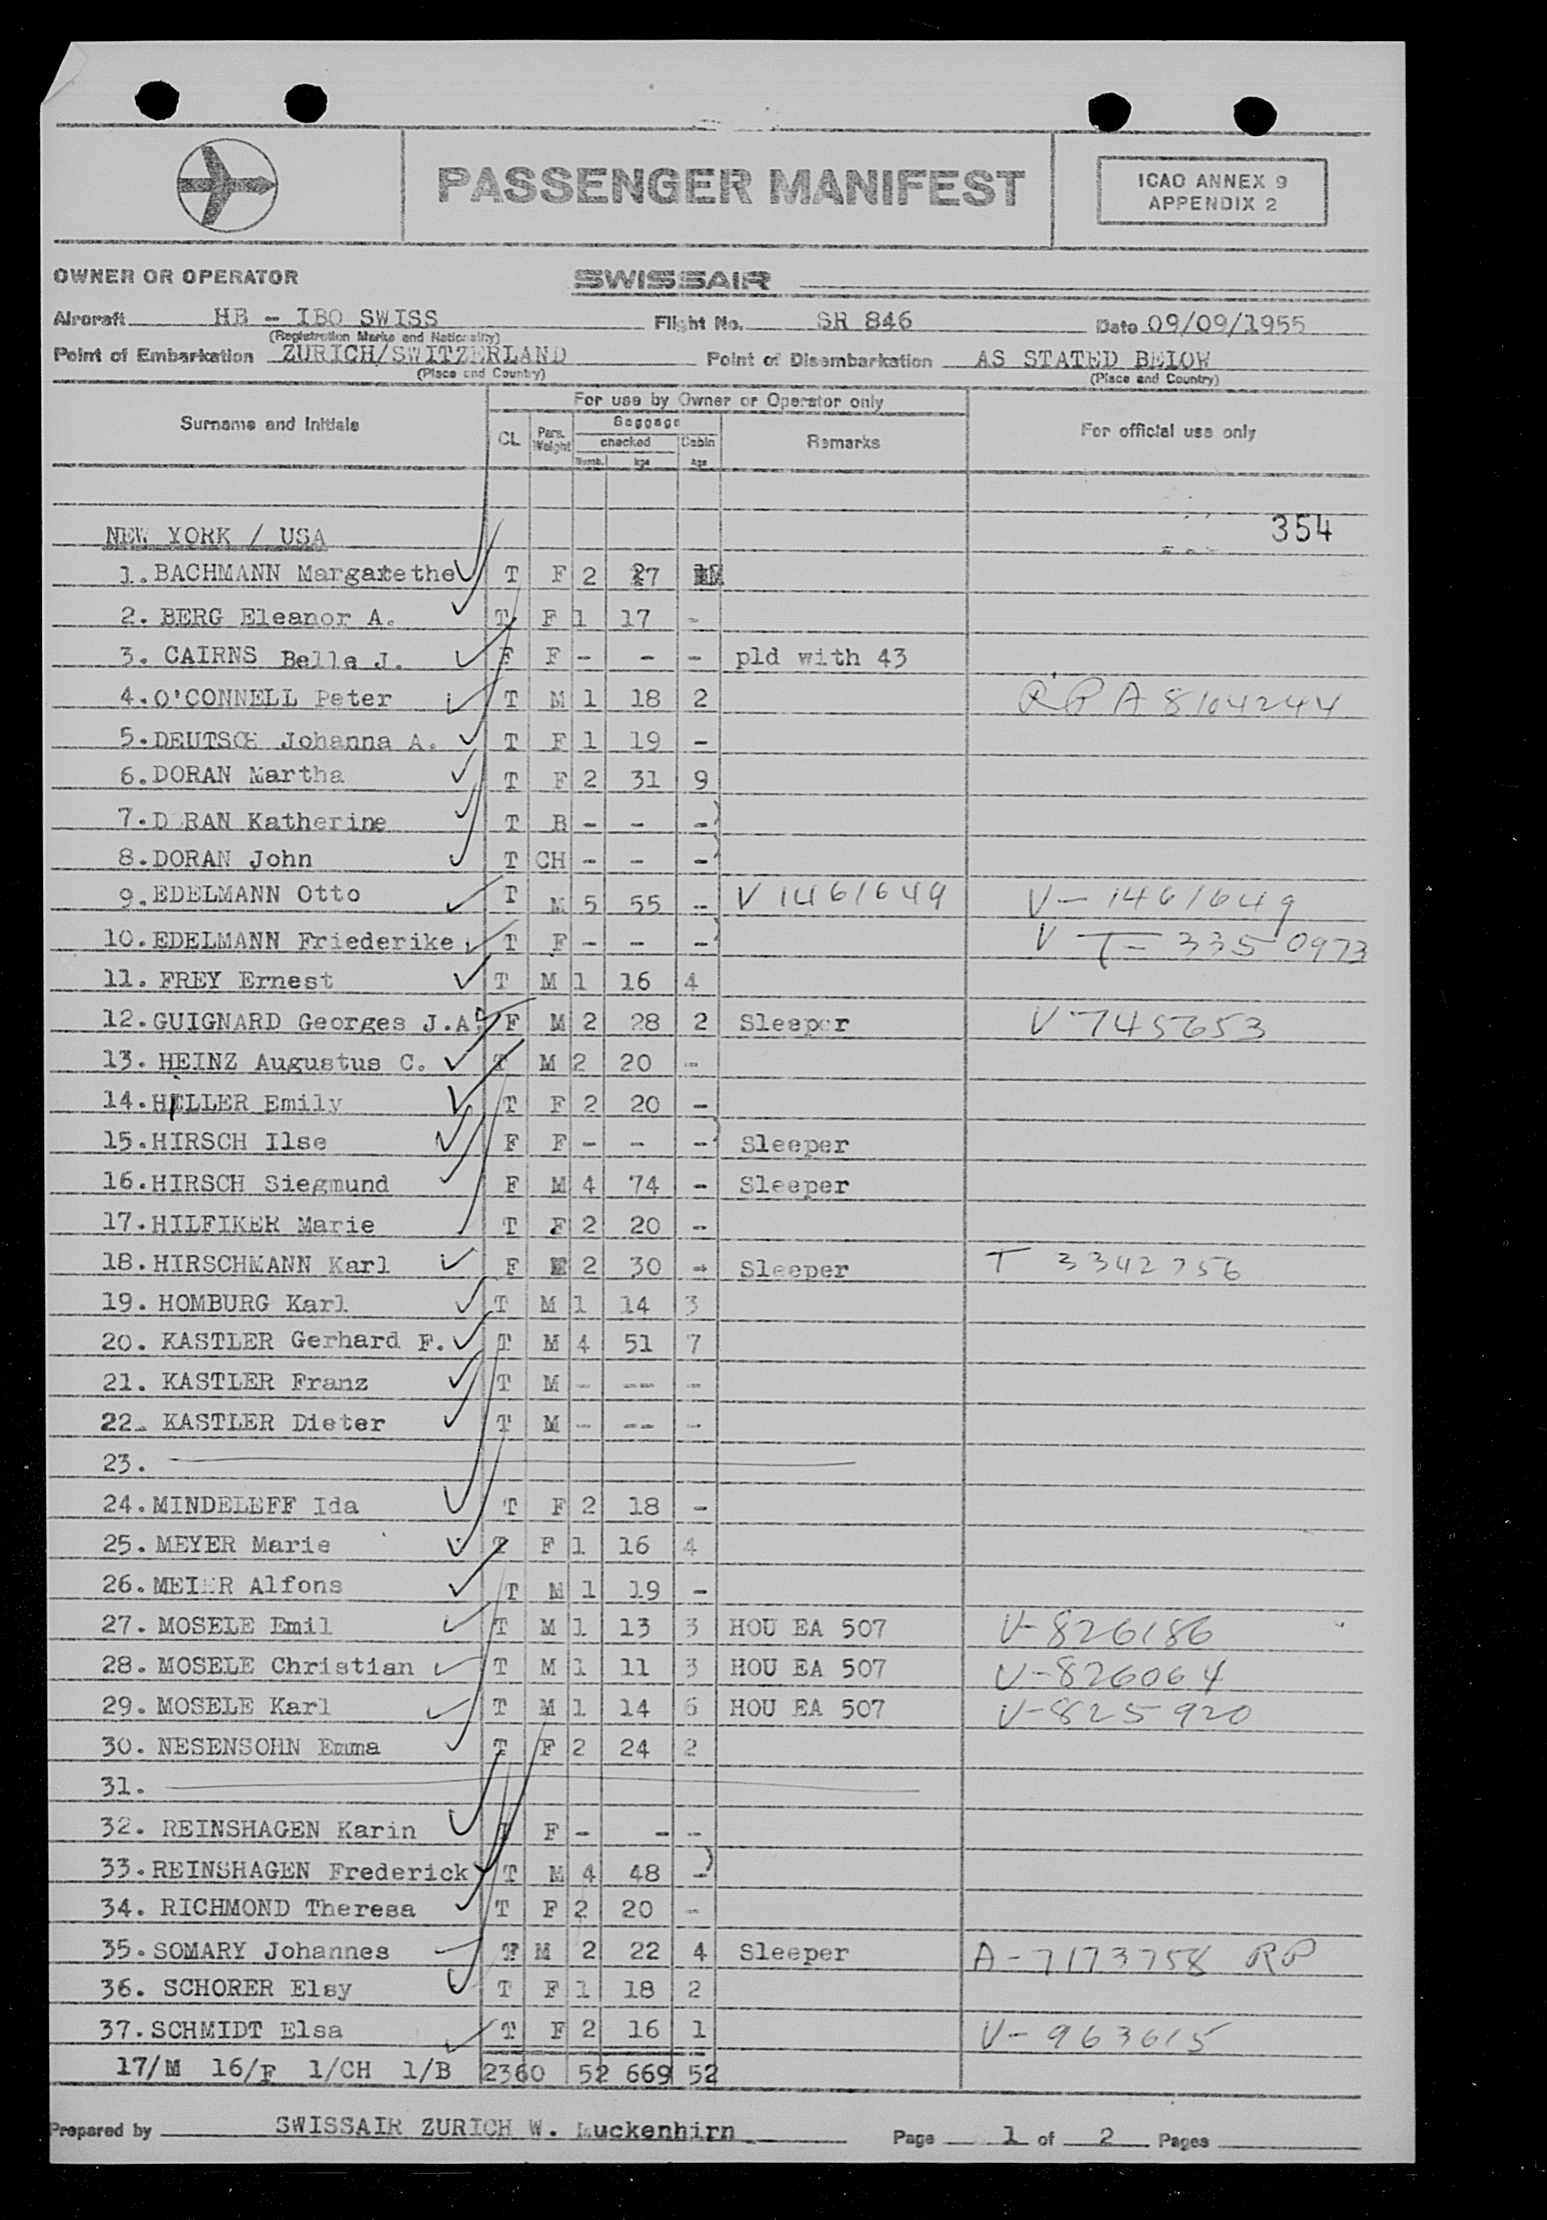 PASSENGER MANIFEST
ICAO ANNEX 9
APPENDIX 2
OWNER OR OPERATOR SWISSAIR
Aircraft HB - IBO SWISS Flight No. SR 846 Date 09/09/1955
(Registration Marks and Nationality)
Point of Embarkation ZURICH/SWITZERLAND Point of Disembarkation AS STATED BELOW
(Place and Country) (Place and Country)
For use by Owner or Operator only
Surname and Initials CL Pars. Weight Baggage Remarks For official use only
checked Cabin
Numb. kgs kgs
354
NEW YORK / USA
1. BACHMANN Margarethe T F 2 27
2. BERG Eleanor A. T F 1 17 -
3. CAIRNS Belle J. F F - - - pld with 43
4. O'CONNELL Peter T M 1 18 2 RP A 8104244
5. DEUTSCH Johanna A. T F 1 19 -
6. DORAN Martha T F 2 31 9
7. D RAN Katherine T B - - -
8. DORAN John T CH - - -
9. EDELMANN Otto T M 5 55 - V 1461649 V - 1461649
10. EDELMANN Friederike T F - - - V T - 3350973
11. FREY Ernest T M 1 16 4
12. GUIGNARD Georges J.A. F M 2 28 2 Sleeper V 745653
13. HEINZ Augustus C. T M 2 20 -
14. HELLER Emily T F 2 20 -
15. HIRSCH Ilse F F - - - Sleeper
16. HIRSCH Siegmund F M 4 74 - Sleeper
17. HILFIKER Marie T F 2 20 -
18. HIRSCHMANN Karl F M 2 30 - Sleeper T 3342756
19. HOMBURG Karl T M 1 14 3
20. KASTLER Gerhard F. T M 4 51 7
21. KASTLER Franz T M - -- -
22. KASTLER Dieter T M - -- -
23.
24. MINDELEFF Ida T F 2 18 -
25. MEYER Marie T F 1 16 4
26. MEIER Alfons T M 1 19 -
27. MOSELE Emil T M 1 13 3 HOU EA 507 V-826186
28. MOSELE Christian T M 1 11 3 HOU EA 507 V-826064
29. MOSELE Karl T M 1 14 6 HOU EA 507 V-825920
30. NESENSOHN Emma T F 2 24 2
31.
32. REINSHAGEN Karin T F - - -
33. REINSHAGEN Frederick T M 4 48 -
34. RICHMOND Theresa T F 2 20 -
35. SOMARY Johannes F M 2 22 4 Sleeper A-7173758 RP
36. SCHORER Elsy T F 1 18 2
37. SCHMIDT Elsa T F 2 16 1 V-963615
17/M 16/F 1/CH 1/B 2360 52 669 52
Prepared by SWISSAIR ZURICH W. Luckenhirn Page 1 of 2 Pages